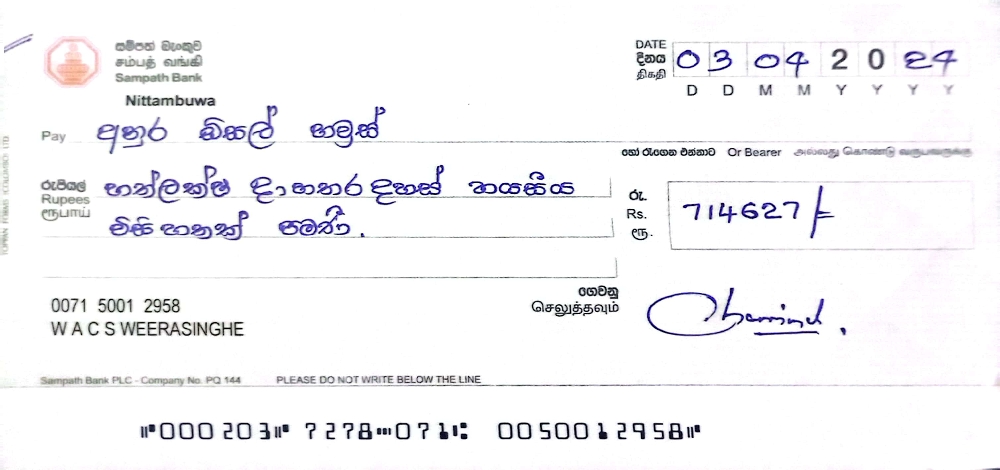 සම්පත් බැංකුව
சம்பத் வங்கி
Sampath Bank
Nittambuwa
DATE
දිනය
திகதி
03 04 2024
D D M M Y Y Y Y
Pay අතුර ඩීසල් හමුස්
හෝ රැගෙන එන්නාට Or Bearer அல்லது கொண்டு வருபவருக்கு
රුපියල් හත්ලක්ෂ දාහතර දහස් හයසීය
Rupees
ரூபாய் විසි හතක් පමණි.
රු.
Rs. 714627/=
ரூ.
0071 5001 2958
W A C S WEERASINGHE
ගෙවනු
செலுத்தவும்
Sampath Bank PLC - Company No. PQ 144 PLEASE DO NOT WRITE BELOW THE LINE
⑈000203⑈ 7278⑉071⑆ 0050012958⑈